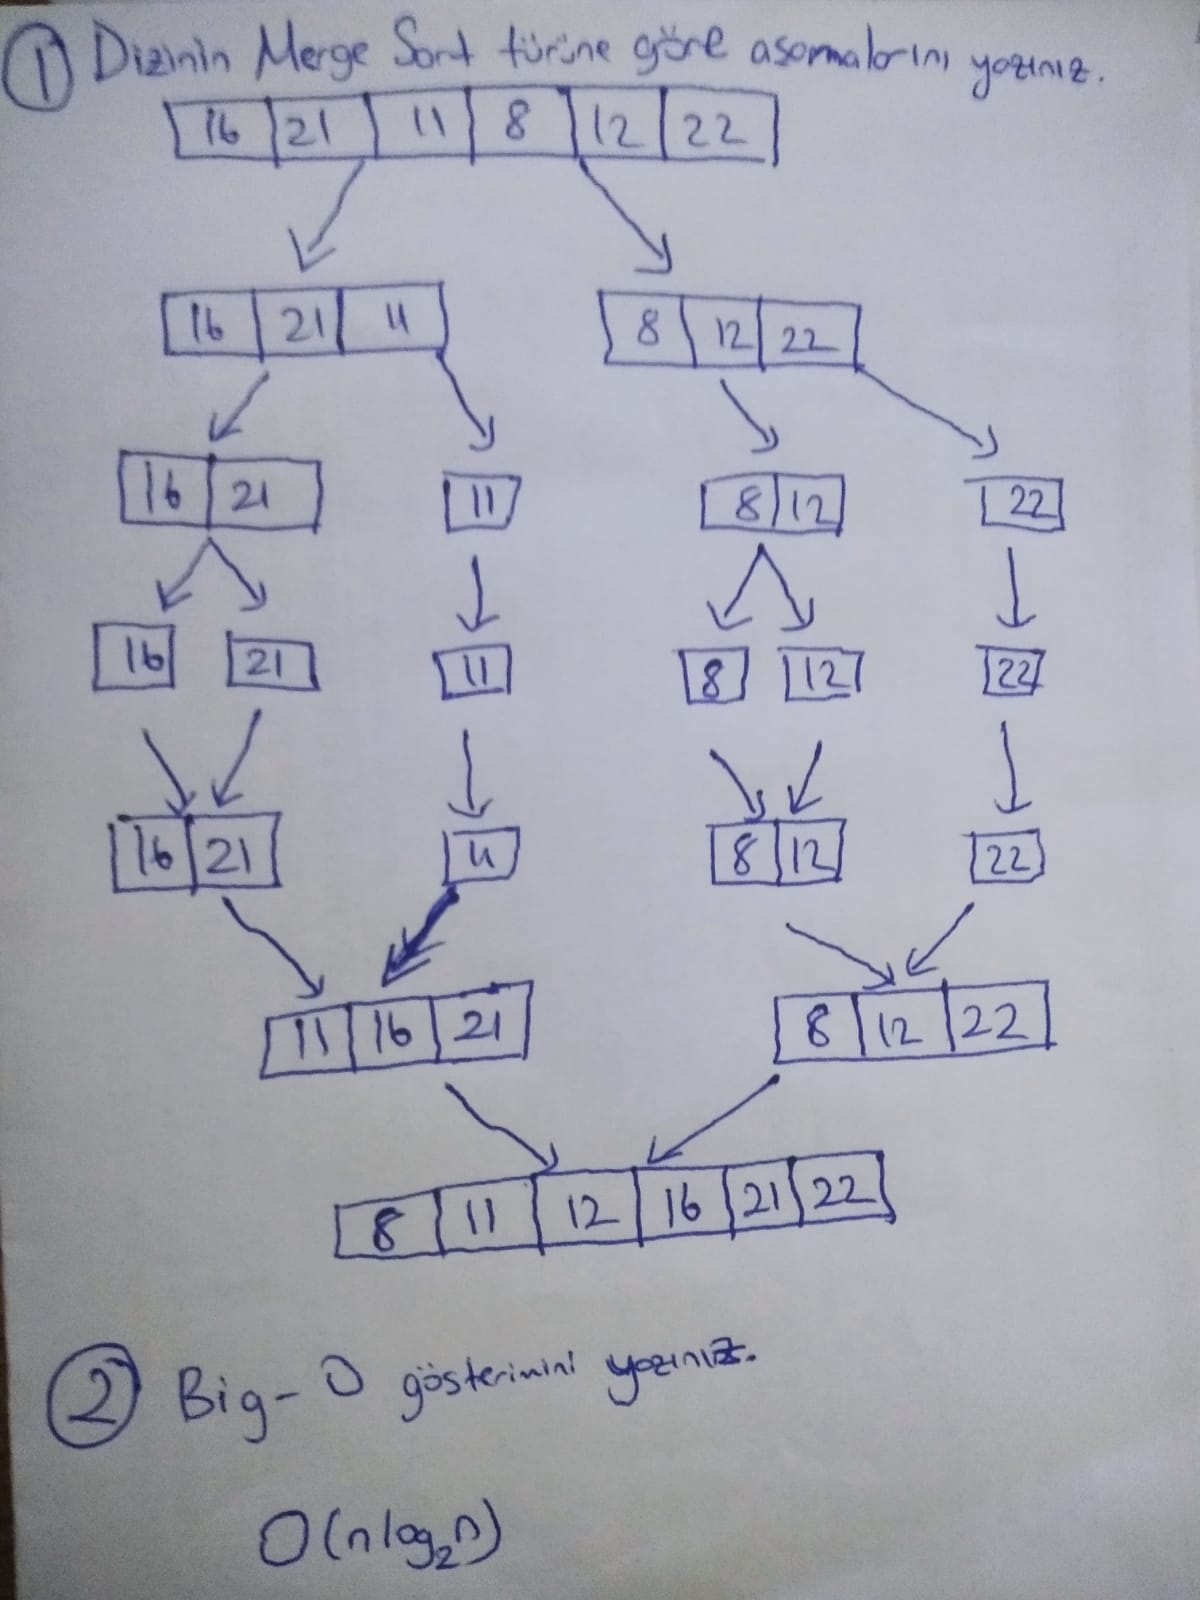 1 Dizinin Merge Sort türüne göre aşamalarını yazınız.
16 21 11 8 12 22
16 21 11 8 12 22
16 21 11 8 12 22
16 21 11 8 12 22
16 21 11 8 12 22
11 16 21 8 12 22
8 11 12 16 21 22
2 Big-O gösterimini yazınız.
O(n log₂n)